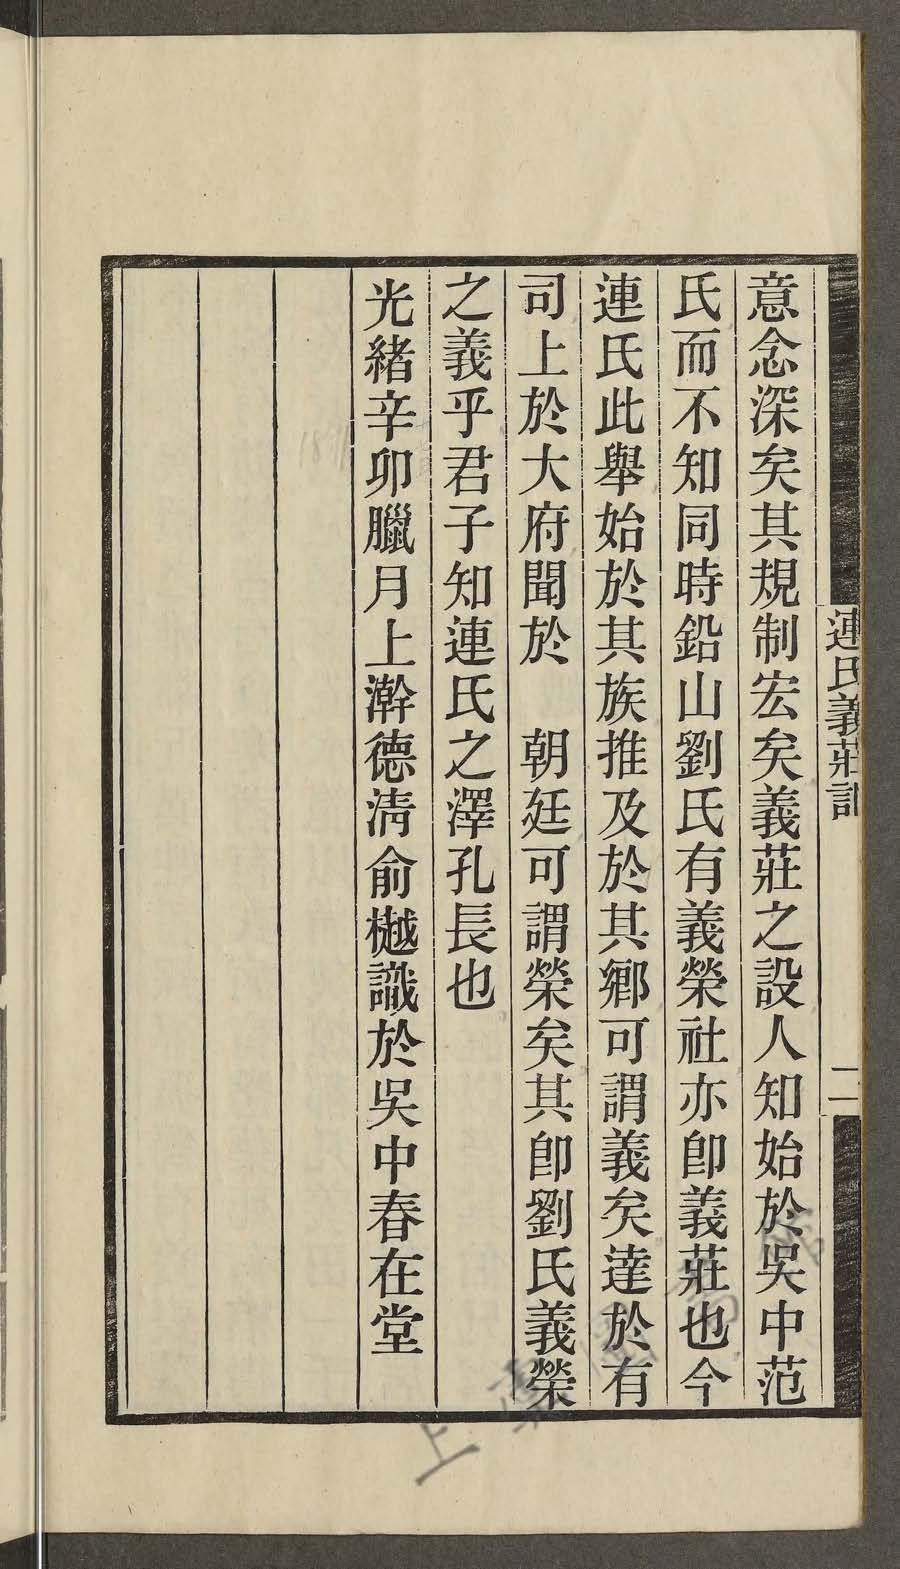 連氏義莊記
二
意念深矣其規制宏矣義莊之設人知始於吳中范
氏而不知同時鉛山劉氏有義榮社亦卽義莊也今
連氏此舉始於其族推及於其鄉可謂義矣達於有
司上於大府聞於　朝廷可謂榮矣其卽劉氏義榮
之義乎君子知連氏之澤孔長也
光緒辛卯臘月上澣德淸俞樾識於吳中春在堂